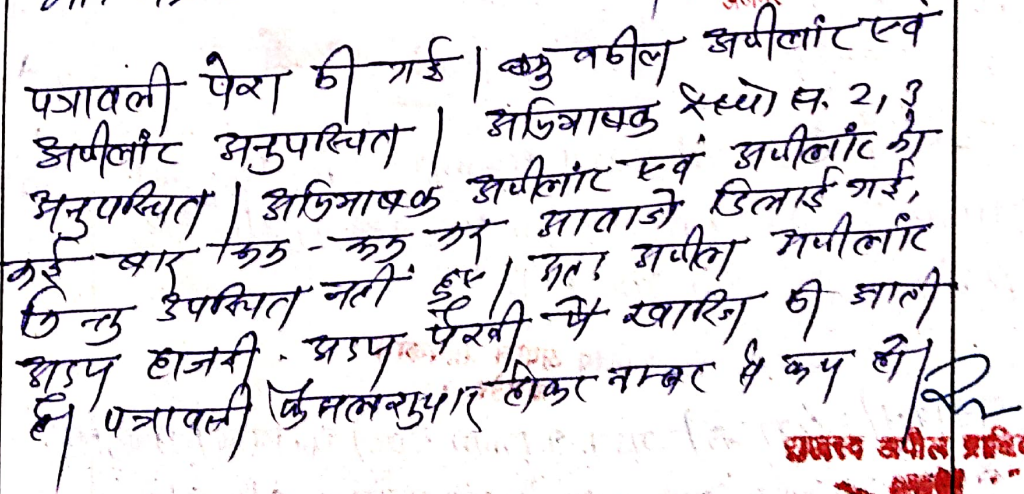 पत्रावली पेश की गई। वकील अपीलांट एवं
अपीलांट अनुपस्थित। अभिभाषक रेस्पो सं. 2, 3
अनुपस्थित। अभिभाषक अपीलांट एवं अपीलांट को
कई बार रूक-रूक कर आवाजे दिलाई गई,
किन्तु उपस्थित नहीं हुए। अतः अपील अपीलांट
अदम हाजरी अदम पैरवी में खारिज की जाती
है। पत्रावली फैसलशुमार होकर नम्बर से कम हो।
राजस्व अपील प्राधि